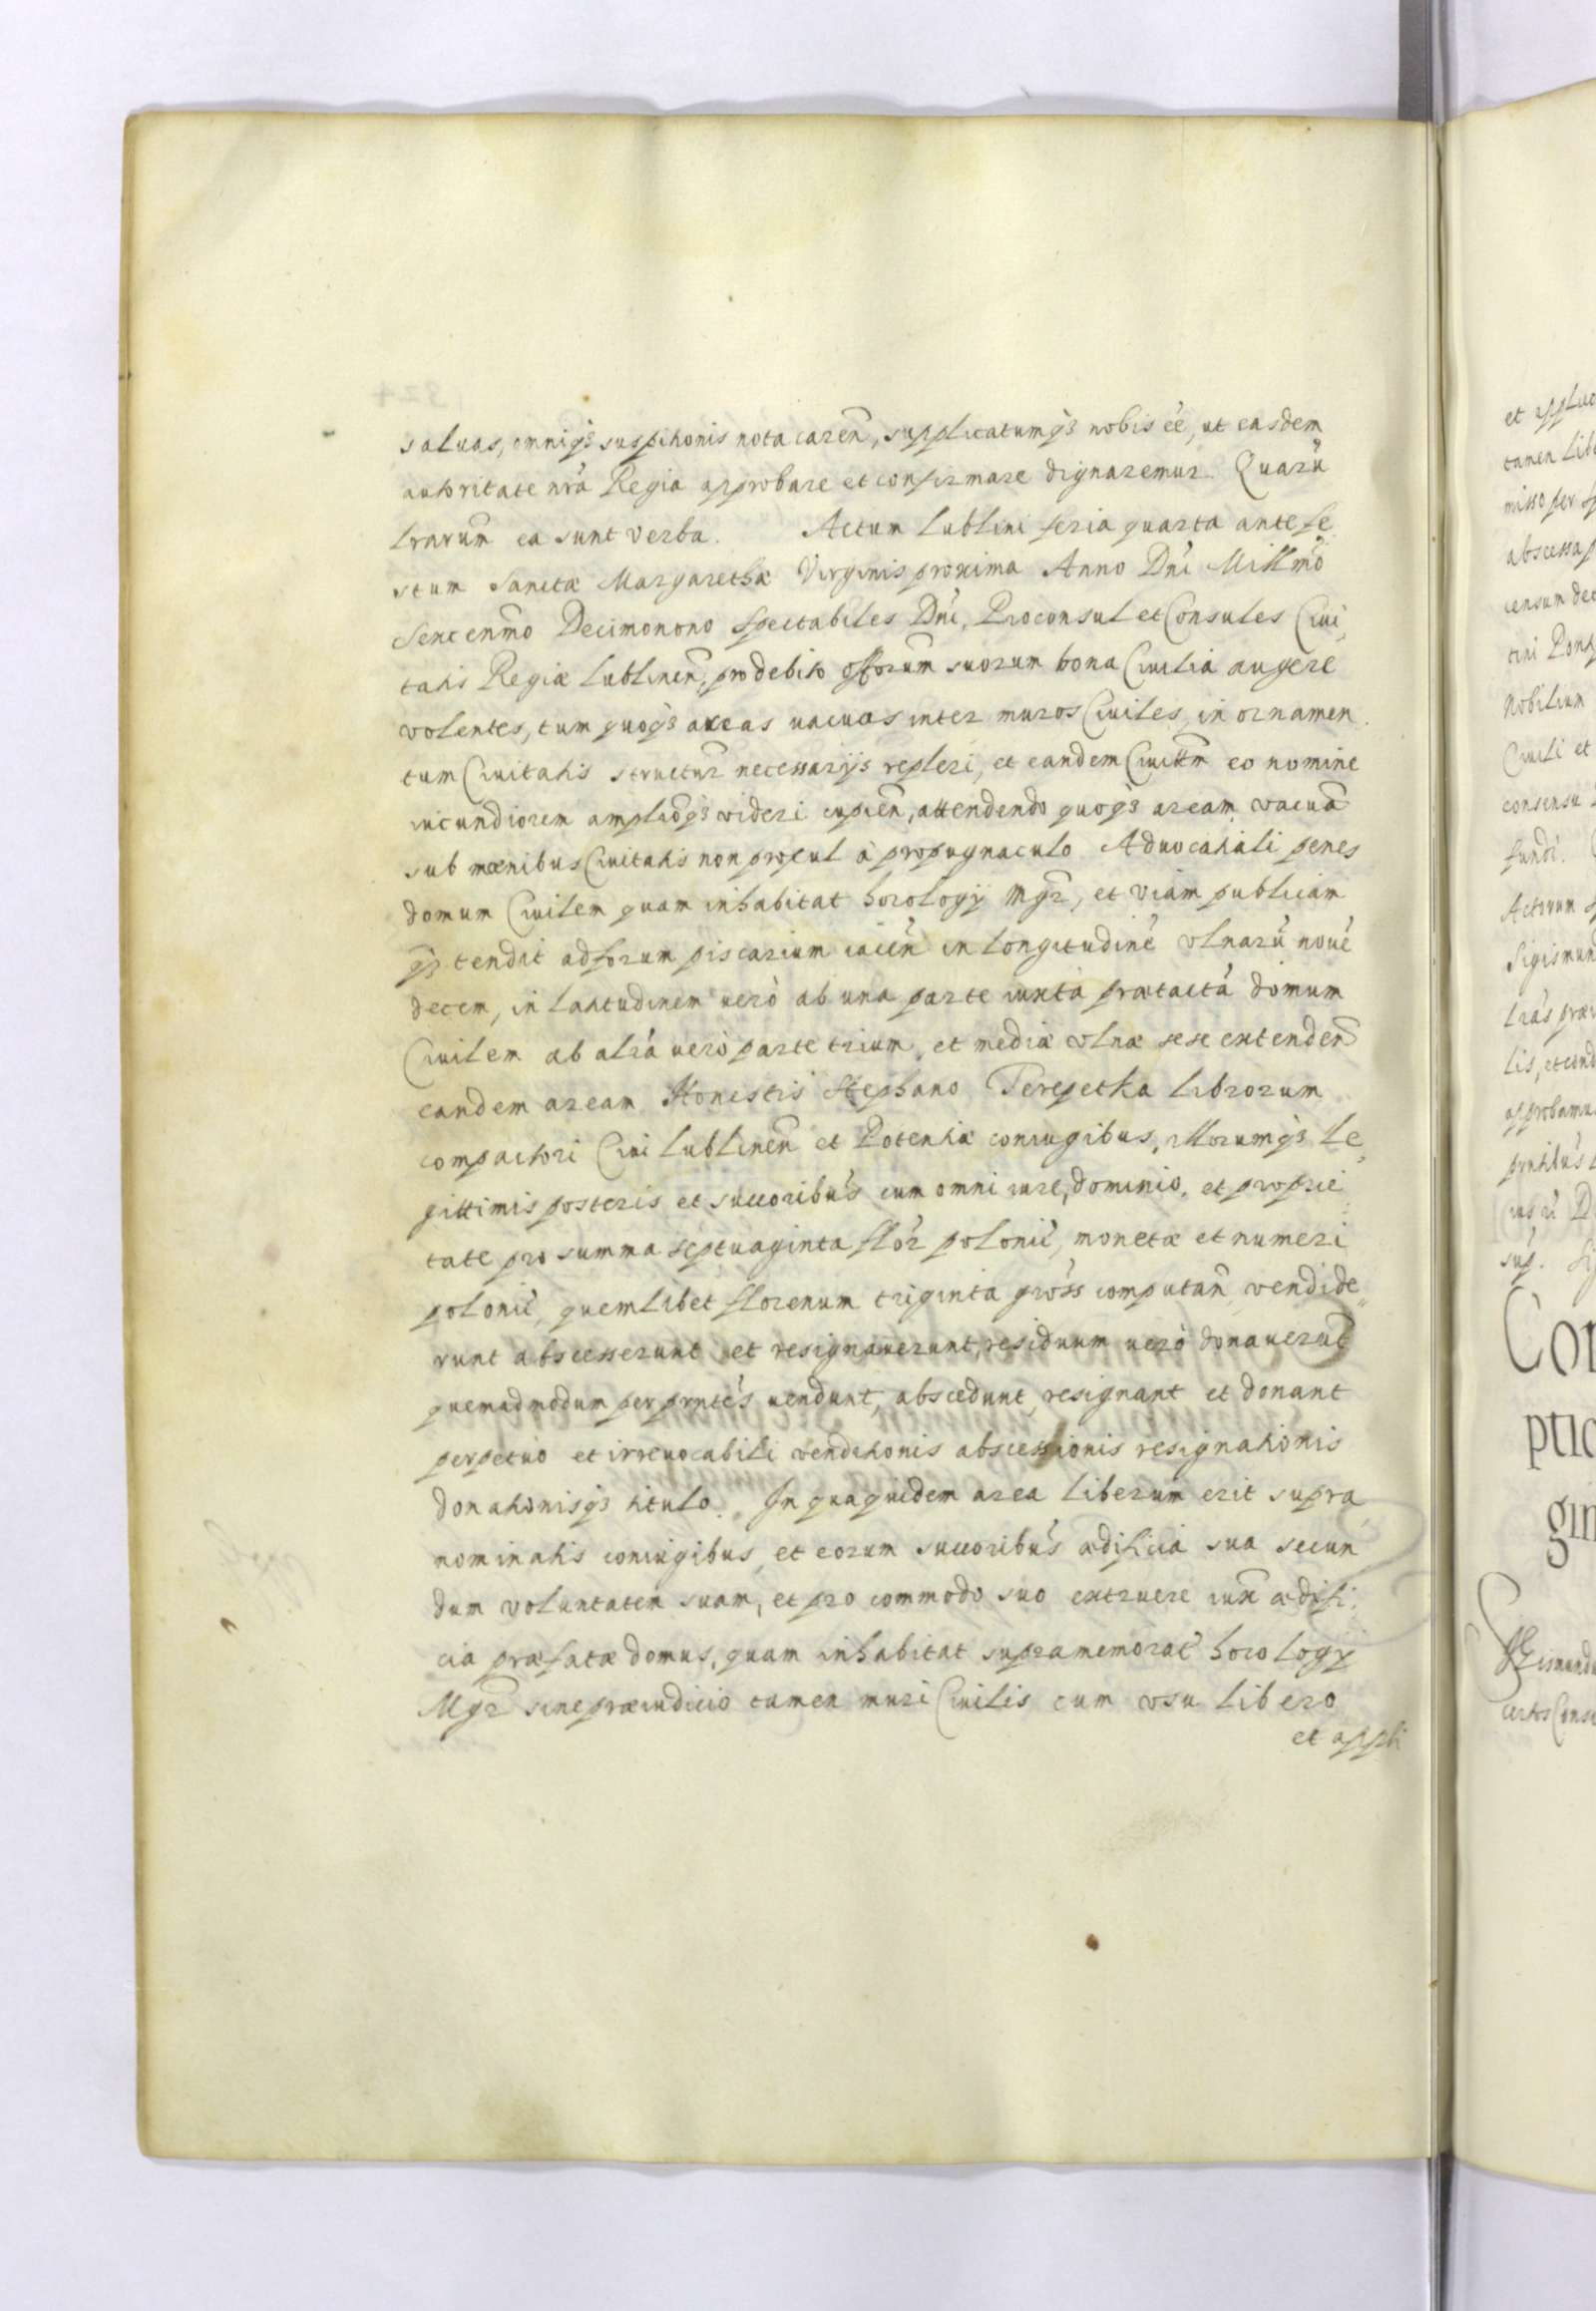 saluas, omniq̃ suspitionis nota carẽn, supplicatumq̃ nobis eẽ, ut easdem
autoritate nrã Regia approbare et confirmare dignaremur. Quarũ
lrarum̃ ea sunt verba. Actum Lublini feria quarta ante fe,
stum Sanctæ Margarethæ Virginis proxima Anno Dnĩ Millm̃o
Sexcenm̃o Decimonono Spectabiles Dnĩ, Proconsul et Consules Ciui,
tatis Regiæ Lublineñ, pro debito offõrum suorum bona Ciuilia augere
volentes, tum quoq̃ areas uacuas inter muros Ciuiles, in ornamen,
tum Ciuitatis structur̃ necessarijs repleri, et eandem Ciuittm̃ eo nomine
iucundiorem ampliõq̃ videri cupieñ, attendendo quoq̃ aream vacuã
sub mœnibus Ciuitatis non procul à propugnaculo Aduocatiali penes
domum Ciuilem quam inhabitat horologij Mgr̃, et viam publicam
q̃ tendit ad forum piscarium iaceñ in longitudinẽ vlnarũ nouẽ
decem, in latitudinem uerò ab una parte iuxta prætactã domum
Ciuilem ab alrã uerò parte trium, et mediæ vlnæ sese extendeñ
eandem aream Honestis Stephano Terepetka Librorum
compactori Ciui Lublineñ et Potentiæ coniugibus, illorumq̃ le,
gittimis posteris et succoribũs cum omni iure, dominio, et proprie
tate pro summa septuaginta flor̃ poloniĉ, monetæ et numeri
poloniĉ, quemlibet florenum triginta gross̃ computañ vendide,
runt abscesserunt et resignauerunt, residuum uerò donauerũt
quemadmodum per prntẽs uendunt, abscedunt, resignant et donant
perpetuò et irreuocabili venditionis abscessionis resignationis
donationisq̃ titulo. In qua quidem area liberum erit supra,
nominatis coniugibus, et eorum succoribũs ædificia sua secun
dum voluntatem suam, et pro commodo suo extruere iux̃ ædifi,
cia præfatæ domus, quam inhabitat supramemorat̃ horologij
Mgr̃ sine præiudicio tamen muri Ciuilis cum vsu libero
et appli